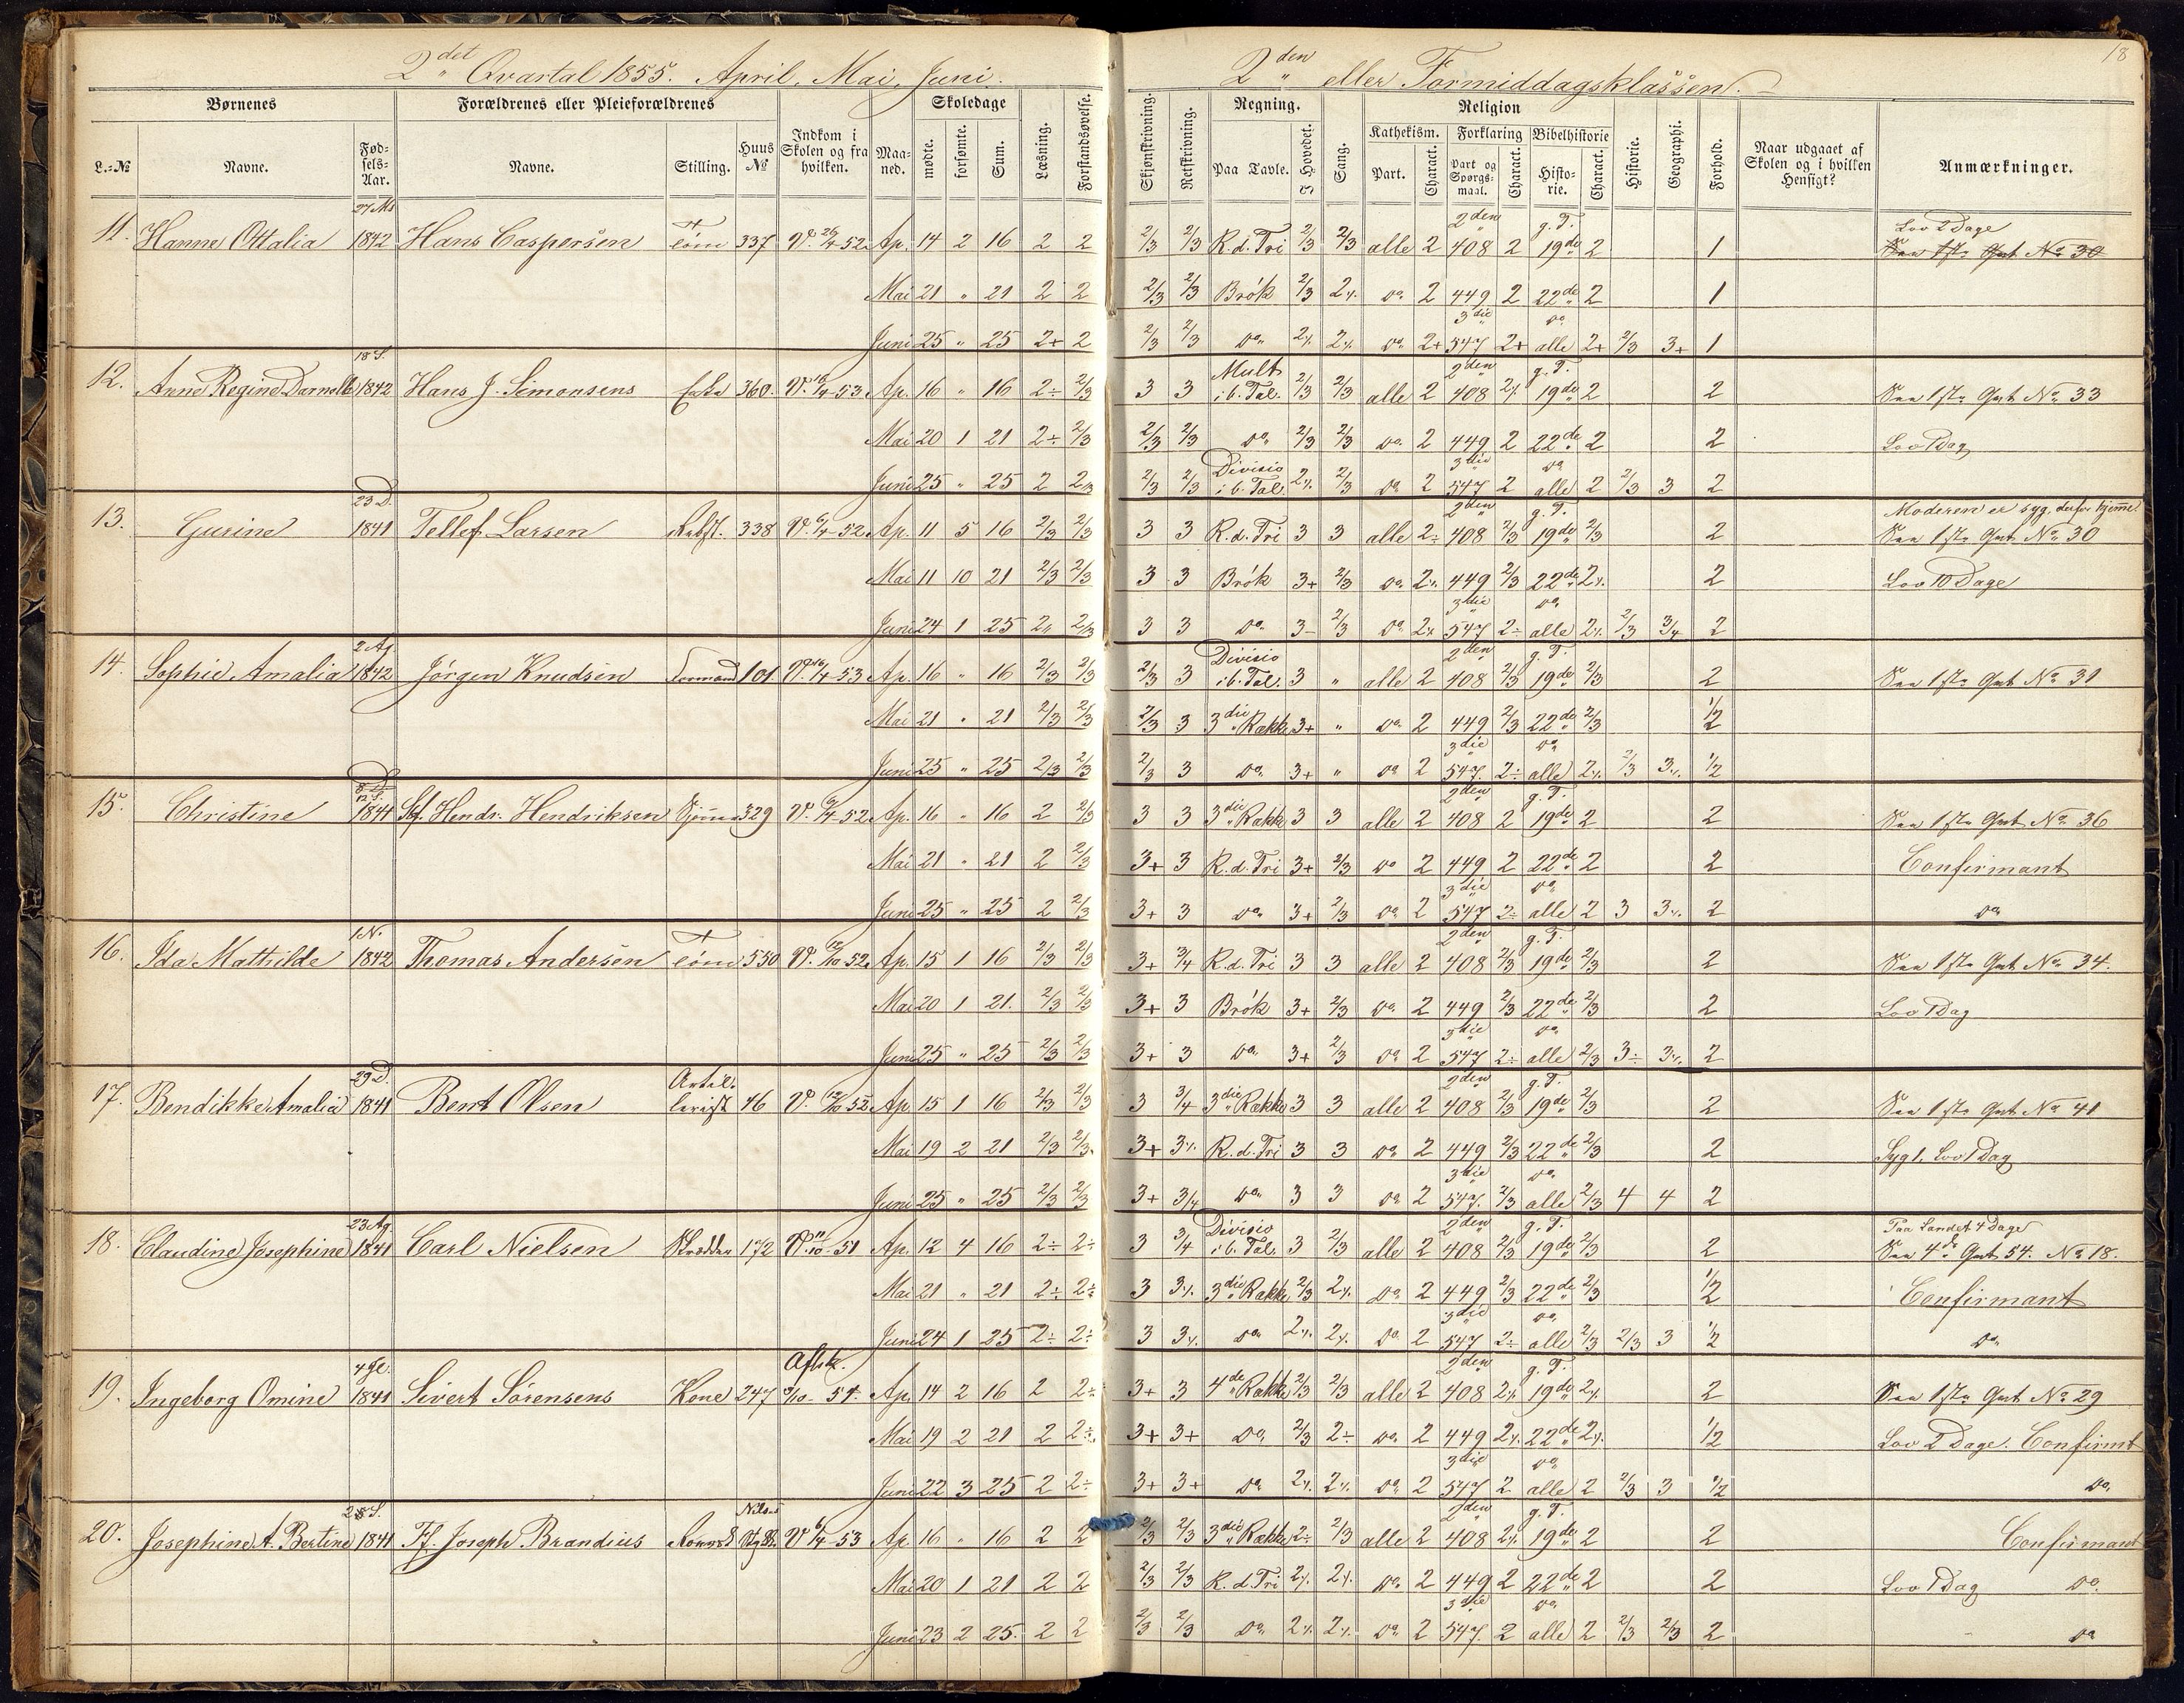 2det Qvartal 1855. April, Mai, Juni.
2den eller Formiddagsklassen.
18
Børnenes | Forældrenes eller Pleieforældrenes | Indkom i Skolen og fra hvilken. | Maaned. | Skoledage | Læsning. | Forstandsøvelse. | Skjønskrivning. | Retskrivning. | Regning. | Sang. | Religion | Historie. | Geographi. | Forhold. | Naar udgaaet af Skolen og i hvilken Hensigt? | Anmærkninger.
L.-No | Navne. | Fødsels-Aar. | Navne. | Stilling. | Huus No | mødte. | forsømte. | Sum. | Paa Tavle. | I Hovedet. | Kathekism. | Forklaring | Bibelhistorie
Part. | Charact. | Part og Spørgsmaal. | Charact. | Historie. | Charact.
11. Hanne Ottalia 27 Ms 1842 Hans Caspersen Tøm 337 V. 26/4-52 Ap. 14 2 16 2 2 2/3 2/3 R.d.Tri 2/3 2/3 alle 2 2den 408 2 g.T. 19de 2 1 Lov 2 Dage
Mai 21 " 21 2 2 2/3 2/3 Brøk 2/3 2% do 2 449 2 22de 2 1
Juni 25 " 25 2+ 2 2/3 2/3 do 2% 2% do 2+ 3die 547 2+ do alle 2+ 2/3 3+ 1
12. Anne Regine 18 S. 1842 Hans J. Simonsens Enke 360. V. -53 Ap. 16 " 16 2÷ 2/3 3 3 Mult i b. Tal. 2/3 2/3 alle 2 2den 408 2% g.T. 19de 2 2 See 1ste Qvt No 33
Mai 20 1 21 2÷ 2/3 2/3 2/3 do 2/3 2/3 do 2 449 2 22de 2 2 Lov 1 Dag
Juni 25 " 25 2 2/3 2/3 2/3 Divisio i b. Tal. 2% 2/3 do 2 3die 547 2 do alle 2 2/3 3 2
13. Gurine 23 D. 1841 Tellef Larsen 338 V. -52 Ap. 11 5 16 2/3 2/3 3 3 R.d.Tri 3 3 alle 2÷ 2den 408 2/3 g.T. 19de 2/3 2 Moderen er syg, derfor hjemme. See 1ste Qvt No 30
Mai 11 10 21 2/3 2/3 3 3 Brøk 3+ 2/3 do 2% 449 2/3 22de 2% 2 Lov 10 Dage
Juni 24 1 25 2/3 3 3 do 3- 2/3 do 2% 3die 547 2÷ do alle 2% 2/3 3/4 2
14. Sophie Amalia 2 Ap 1842 Jørgen Knudsen Formand 101. V. 16/4-53 Ap. 16 " 16 2/3 2/3 2/3 3 Divisio i b. Tal. 3 " alle 2 2den 408 2/3 g.T. 19de 2/3 2 See 1ste Qvt No 31
Mai 21 " 21 2/3 2/3 2/3 3 3die Række 3+ " do 2 449 2/3 22de 2/3 1/2
Juni 25 " 25 2/3 2/3 2/3 3 do 3+ " do 2 3die 547. 2÷ do alle 2% 2/3 3% 1/2
15. Christine 12 S. 1841 Hendr. Hendriksen Sjøm 329 V. -52 Ap. 16 " 16 2 2/3 3 3 3die Række 3 3 alle 2 2den 408 2 g.T. 19de 2 2 See 1ste Qvt No 36
Mai 21 " 21 2 2/3 3+ 3 R.d.Tri 3+ 2/3 do 2 449 2 22de 2 2 Confirmant
Juni 25 " 25 2 2/3 3+ 3 do 3+ 2/3 do 2 3die 547 2÷ do alle 2 3 3% 2 do
16. Ida Mathilde 1 N. 1842 Thomas Andersen Tøm 550 V. 12/10 52 Ap. 15 1 16 2/3 2/3 3+ 3/4 R.d.Tri 3 3 alle 2 2den 408 2/3 g.T. 19de 2/3 2 See 1ste Qvt No 34.
Mai 20 1 21. 2/3 2/3 3+ 3 Brøk 3+ 2/3 do 2 449 2/3 22de 2/3 2 Lov 1 Dag
Juni 25 " 25 2/3 2/3 3+ 3 do 3+ 2/3 do 2 3die 547 2÷ do alle 2/3 3÷ 3% 2
17. Bendikke Amalia 29 D. 1841 Bent Olsen Artillerist 46 V. 12/10 52 Ap 15 1 16 2/3 2/3 3 3/4 3die Række 3 3 alle 2 2den 408 2/3 g.T. 19de 2/3 2 See 1ste Qvt No 41
Mai 19 2 21 2/3 2/3. 3+ 3% R.d.Tri 3 3 do 2 449 2/3 22de 2/3 2 Syg 1, Lov 1 Dag
Juni 25 " 25 2/3 2/3 3+ 3/4 do 3 3 do 2 3die 547. 2/3 do alle 2/3 4 4 2
18. Claudine Josephine 23 Ag. 1841 Carl Nielsen Skrædder 172 V. 11/10-51 Ap. 12 4 16 2÷ 2÷ 3 3/4 Divisio i b. Tal. 3 2/3 alle 2 2den 408 2/3 g.T. 19de 2/3 2 Paa Landet 4 Dage See 4de Qvt 54. No 18.
Mai 21 " 21 2÷ 2÷ 3 3% 3die Række 2/3 2% do 2 449 2/3 22de 2/3 1/2 Confirmant
Juni 24 1 25 2÷ 2÷ 3 3% do 2% 2% do 2 3die 547 2÷ do alle 2/3 2/3 3 1/2 do
19. Ingeborg Omine 1841 Sivert Sørensens Kone 247 Aftsk. Ap. 14 2 16 2 2÷ 3+ 3 4de Række 2/3 2/3 alle 2 2den 408 2% g.T. 19de 2% 2 See 1ste Qvt No 29
Mai 19 2 21 2 2÷ 3+ 3+ do 2/3 2÷ do 2 449 2% 22de 2% 1/2 Lov 2 Dage. Confirmt
Juni 22 3 25 2 2÷ 3+ 3+ do 2% 2% do 2 3die 547 2 do alle 2 2/3 3 1/2 do
20. Josephine A. Bertine 1841 Ff. Joseph Brandius V 6/4-53 Ap. 16 " 16 2 2 2/3 2/3 3die Række 2÷ 2/3 alle 2 2den 408 2% g.T. 19de 2 2 Confirmant
Mai 20 1 21 2 2 2/3 2/3 R.d.Tri 2% 2% do 2 449 2 22de 2 2 Lov 1 Dag do
Juni 23 2 25. 2 2 2/3 2/3 do 2% 2% do 2 3die 547. 2 do alle 2 2/3 2/3 2 do